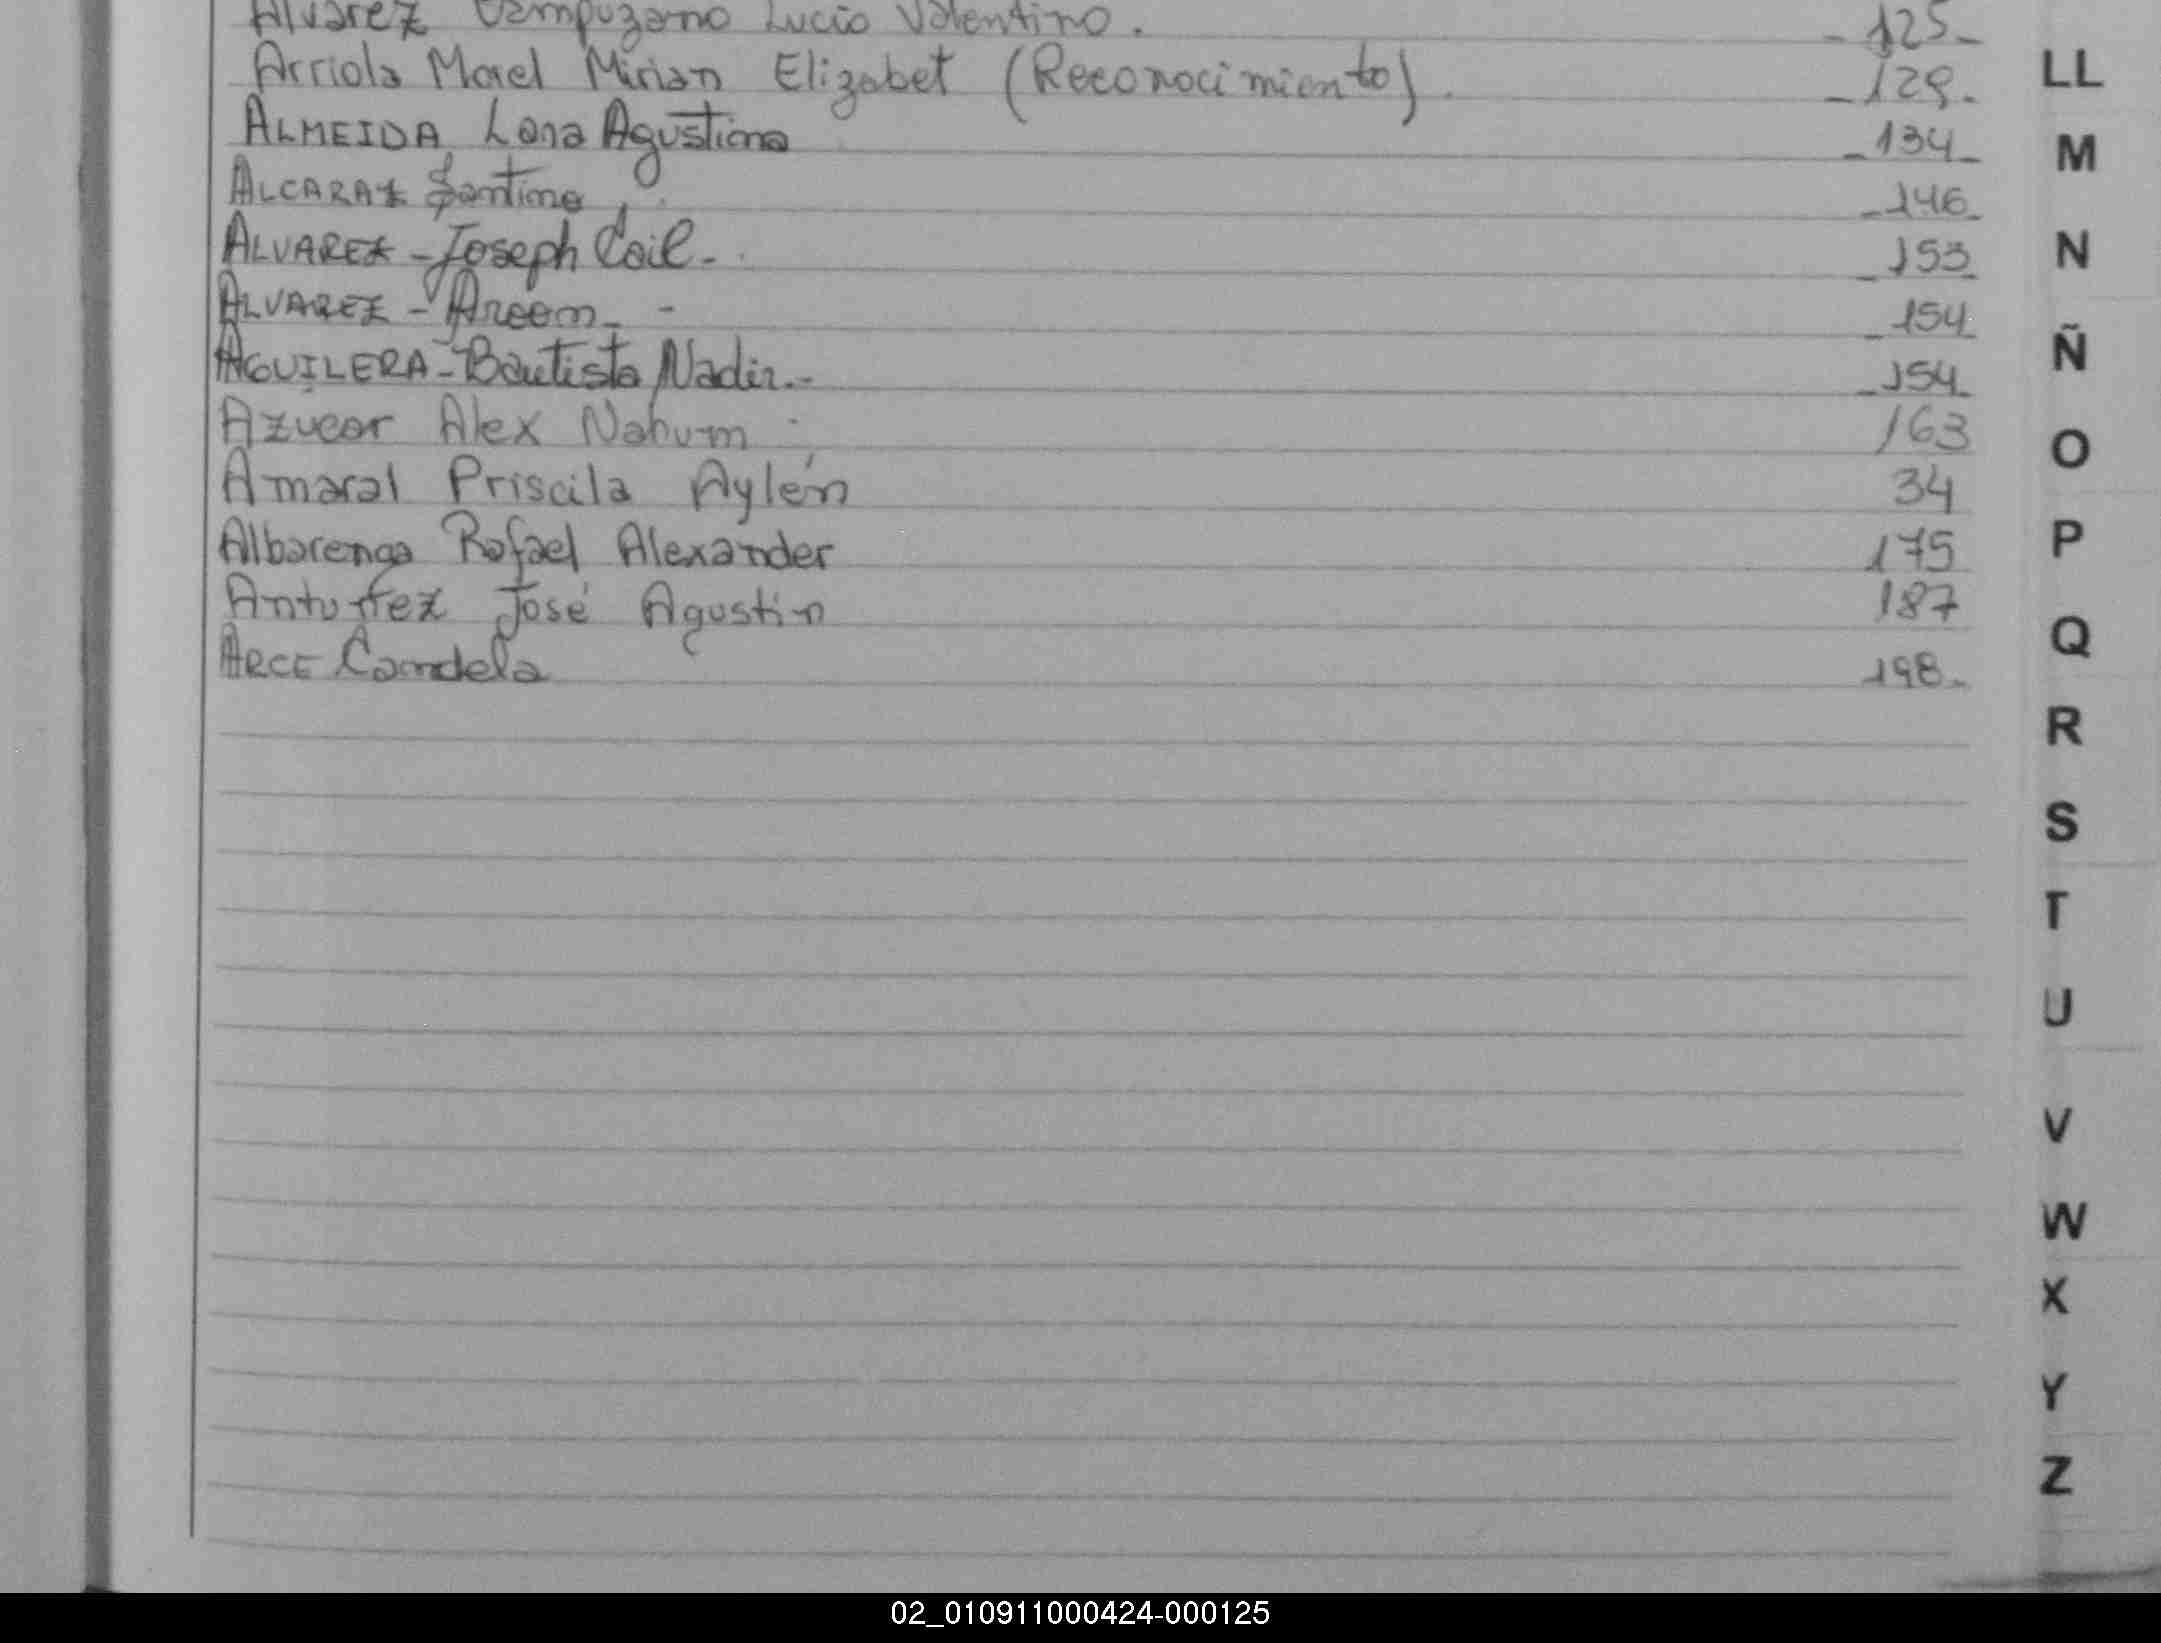 Alvarez Campuzano Lucio Valentino. - 125 -
Arriola Morel Mirian Elizabet (Reconocimiento). - 129 -
ALMEIDA Lana Agustina - 134 -
ALCARAZ Santino - 146 -
ALVAREZ - Joseph Cail - 153 -
ALVAREZ - Areem - - 154 -
AGUILERA - Bautista Nadir. - - 154 -
Azucar Alex Nahum 163
Amaral Priscila Aylén 34
Albarenga Rafael Alexander 175
Antuñez José Agustin 187
ARCE Candela 198 -
LL
M
N
Ñ
O
P
Q
R
S
T
U
V
W
X
Y
Z
02_010911000424-000125